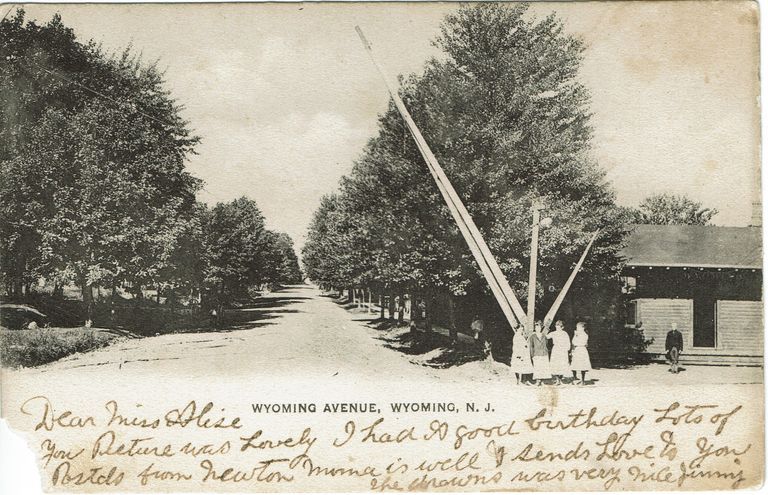 WYOMING AVENUE, WYOMING, N. J.
Dear Miss Alise
You Picture was Lovely I had A good birthday Lots of
Postels from Newton Moma is well & sends Love to You
the drawns was very nice Jinny